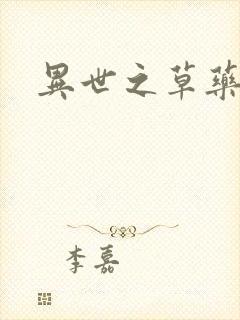 異世之草藥
李嘉